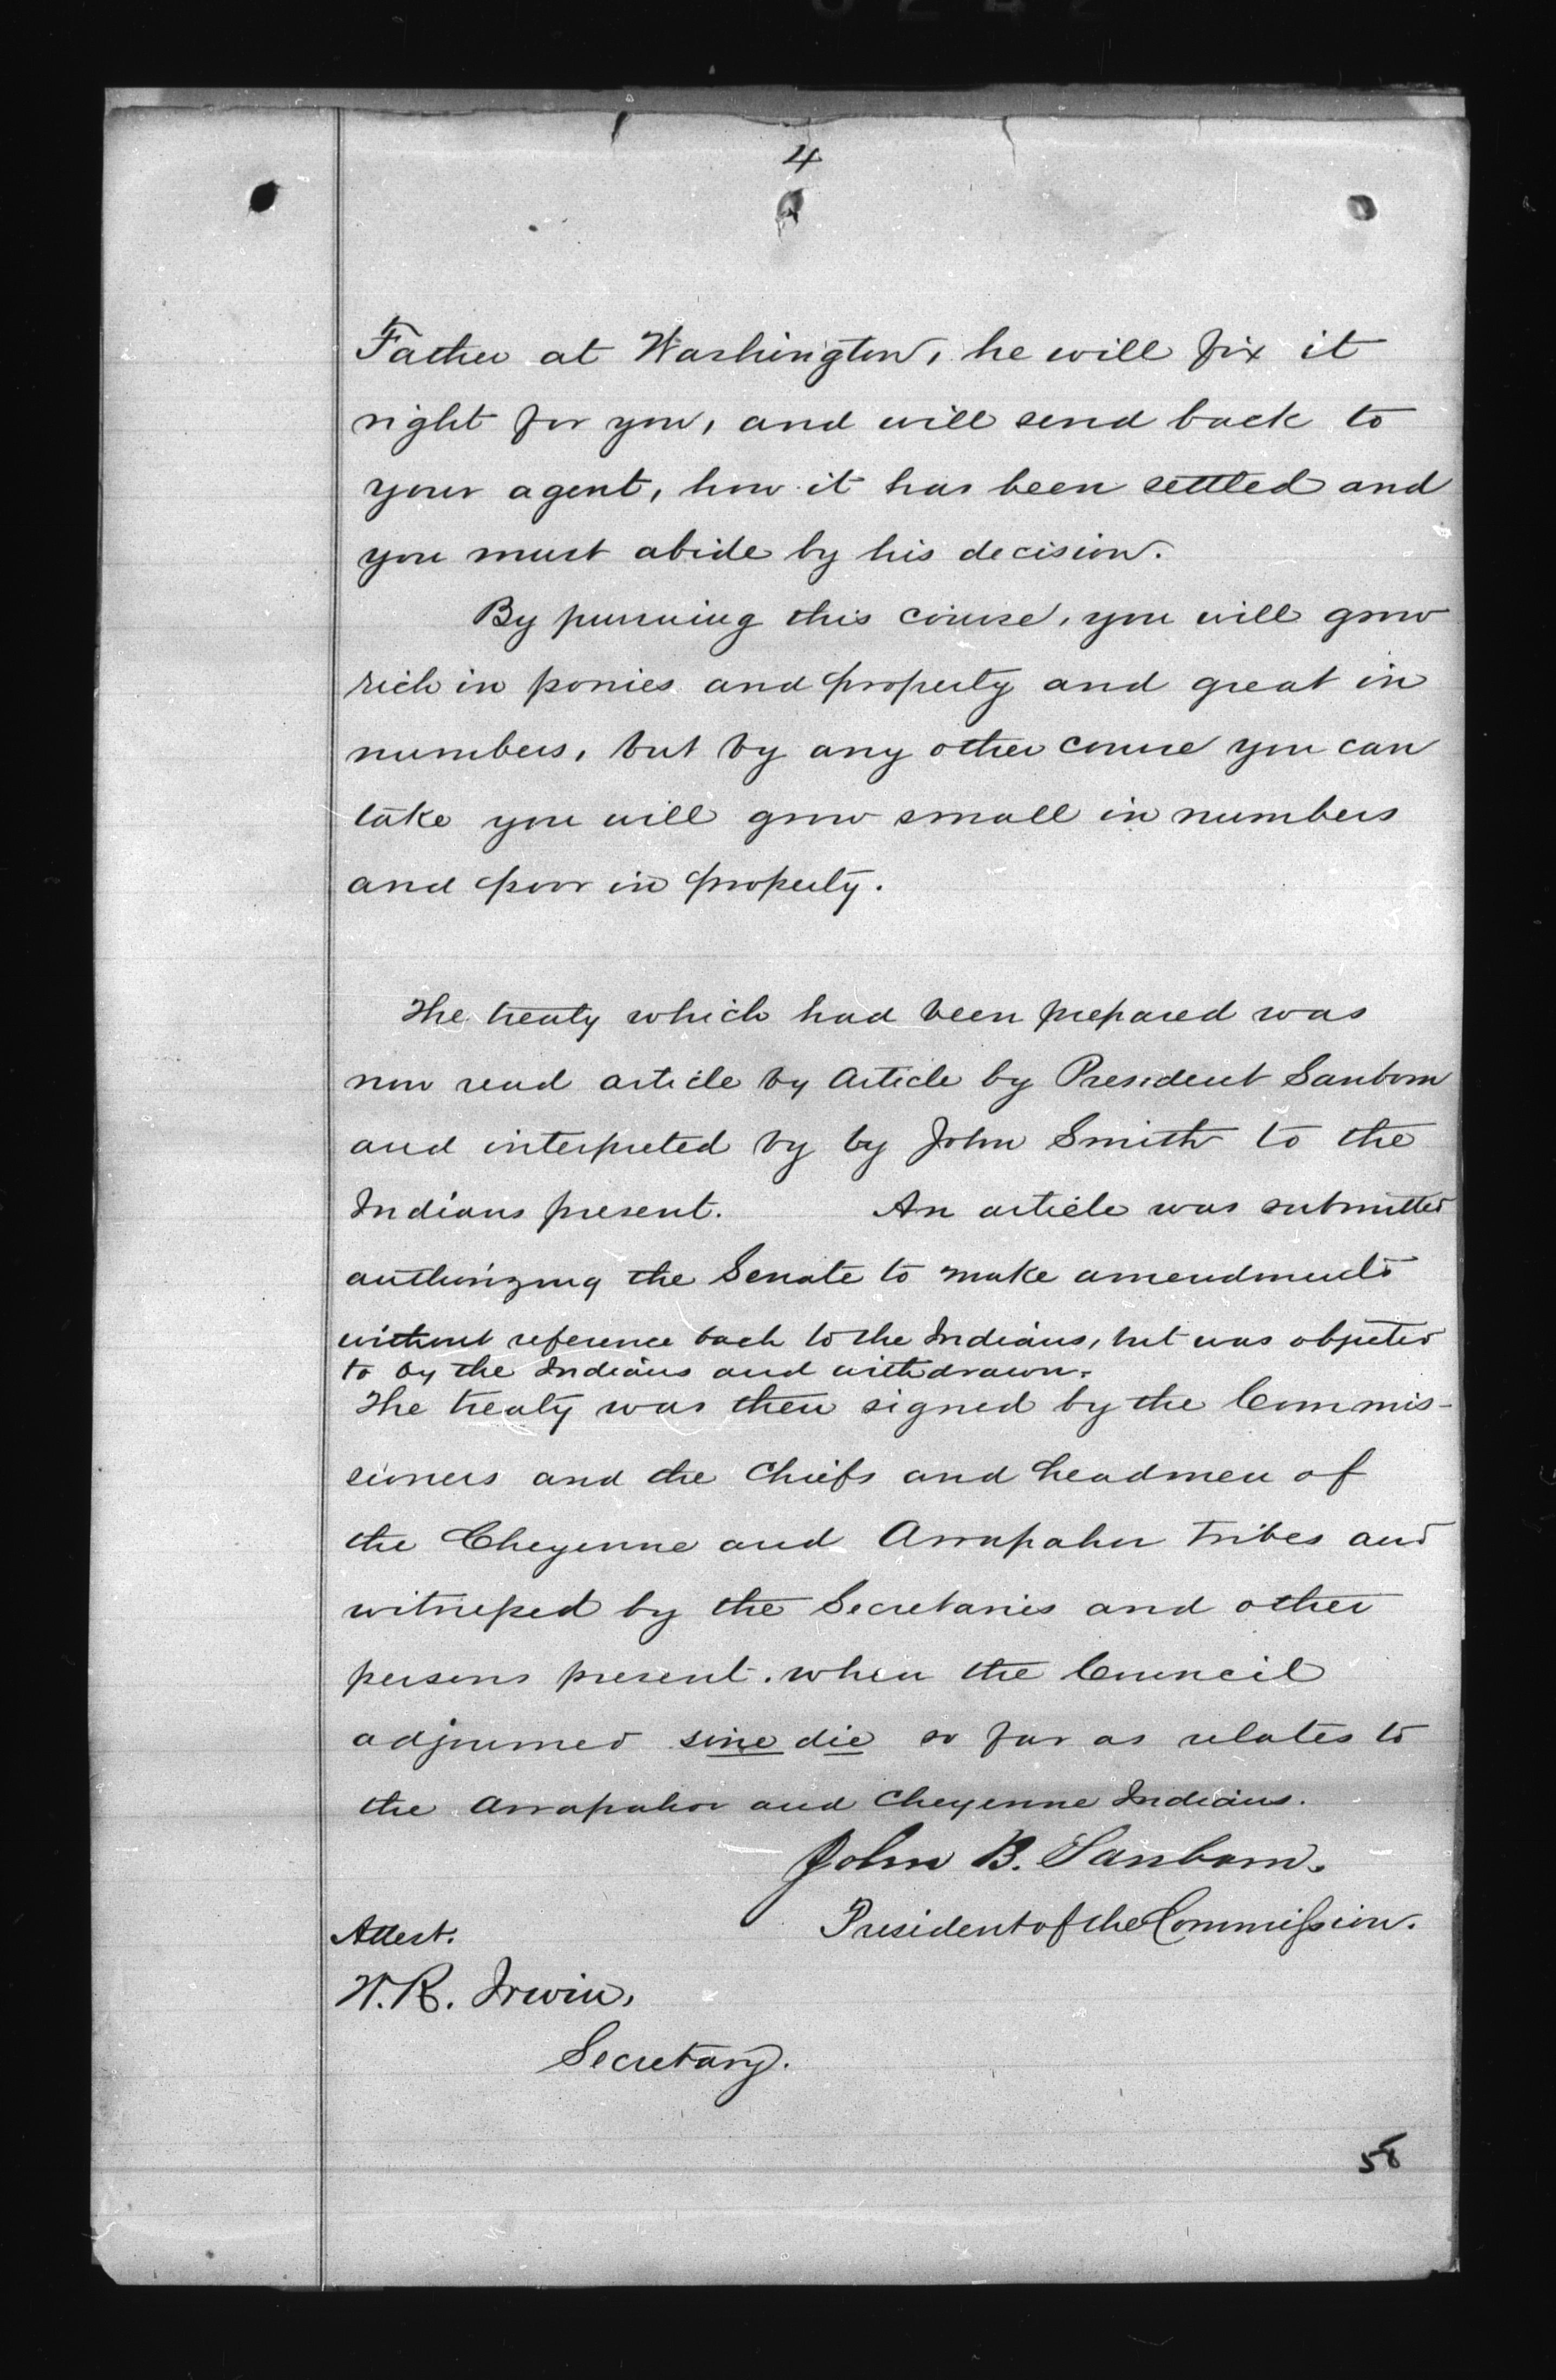 4
Father at Washington, he will fix it
right for you, and will send back to
your agent, how it has been settled and
you must abide by his decision.
By pursuing this course, you will grow
rich in ponies and property and great in
numbers, but by any other course you can
take you will grow small in numbers
and poor in property.
The treaty which had been prepared was
now read article by article by President Sanborn
and interpreted by by John Smith to the
Indians present. An article was submitted
authorizing the Senate to make amendments
without reference back to the Indians, but was objected
to by the Indians and withdrawn.
The treaty was then signed by the Commis-
sioners and the Chiefs and headmen of
the Cheyenne and Arrapahoe tribes and
witnessed by the Secretaries and other
persons present. when the Council
adjourned sine die so far as relates to
the Arrapahoe and Cheyenne Indians.
John B. Sanborn.
President of the Commission.
Attest.
W. R. Irwin,
Secretary.
58